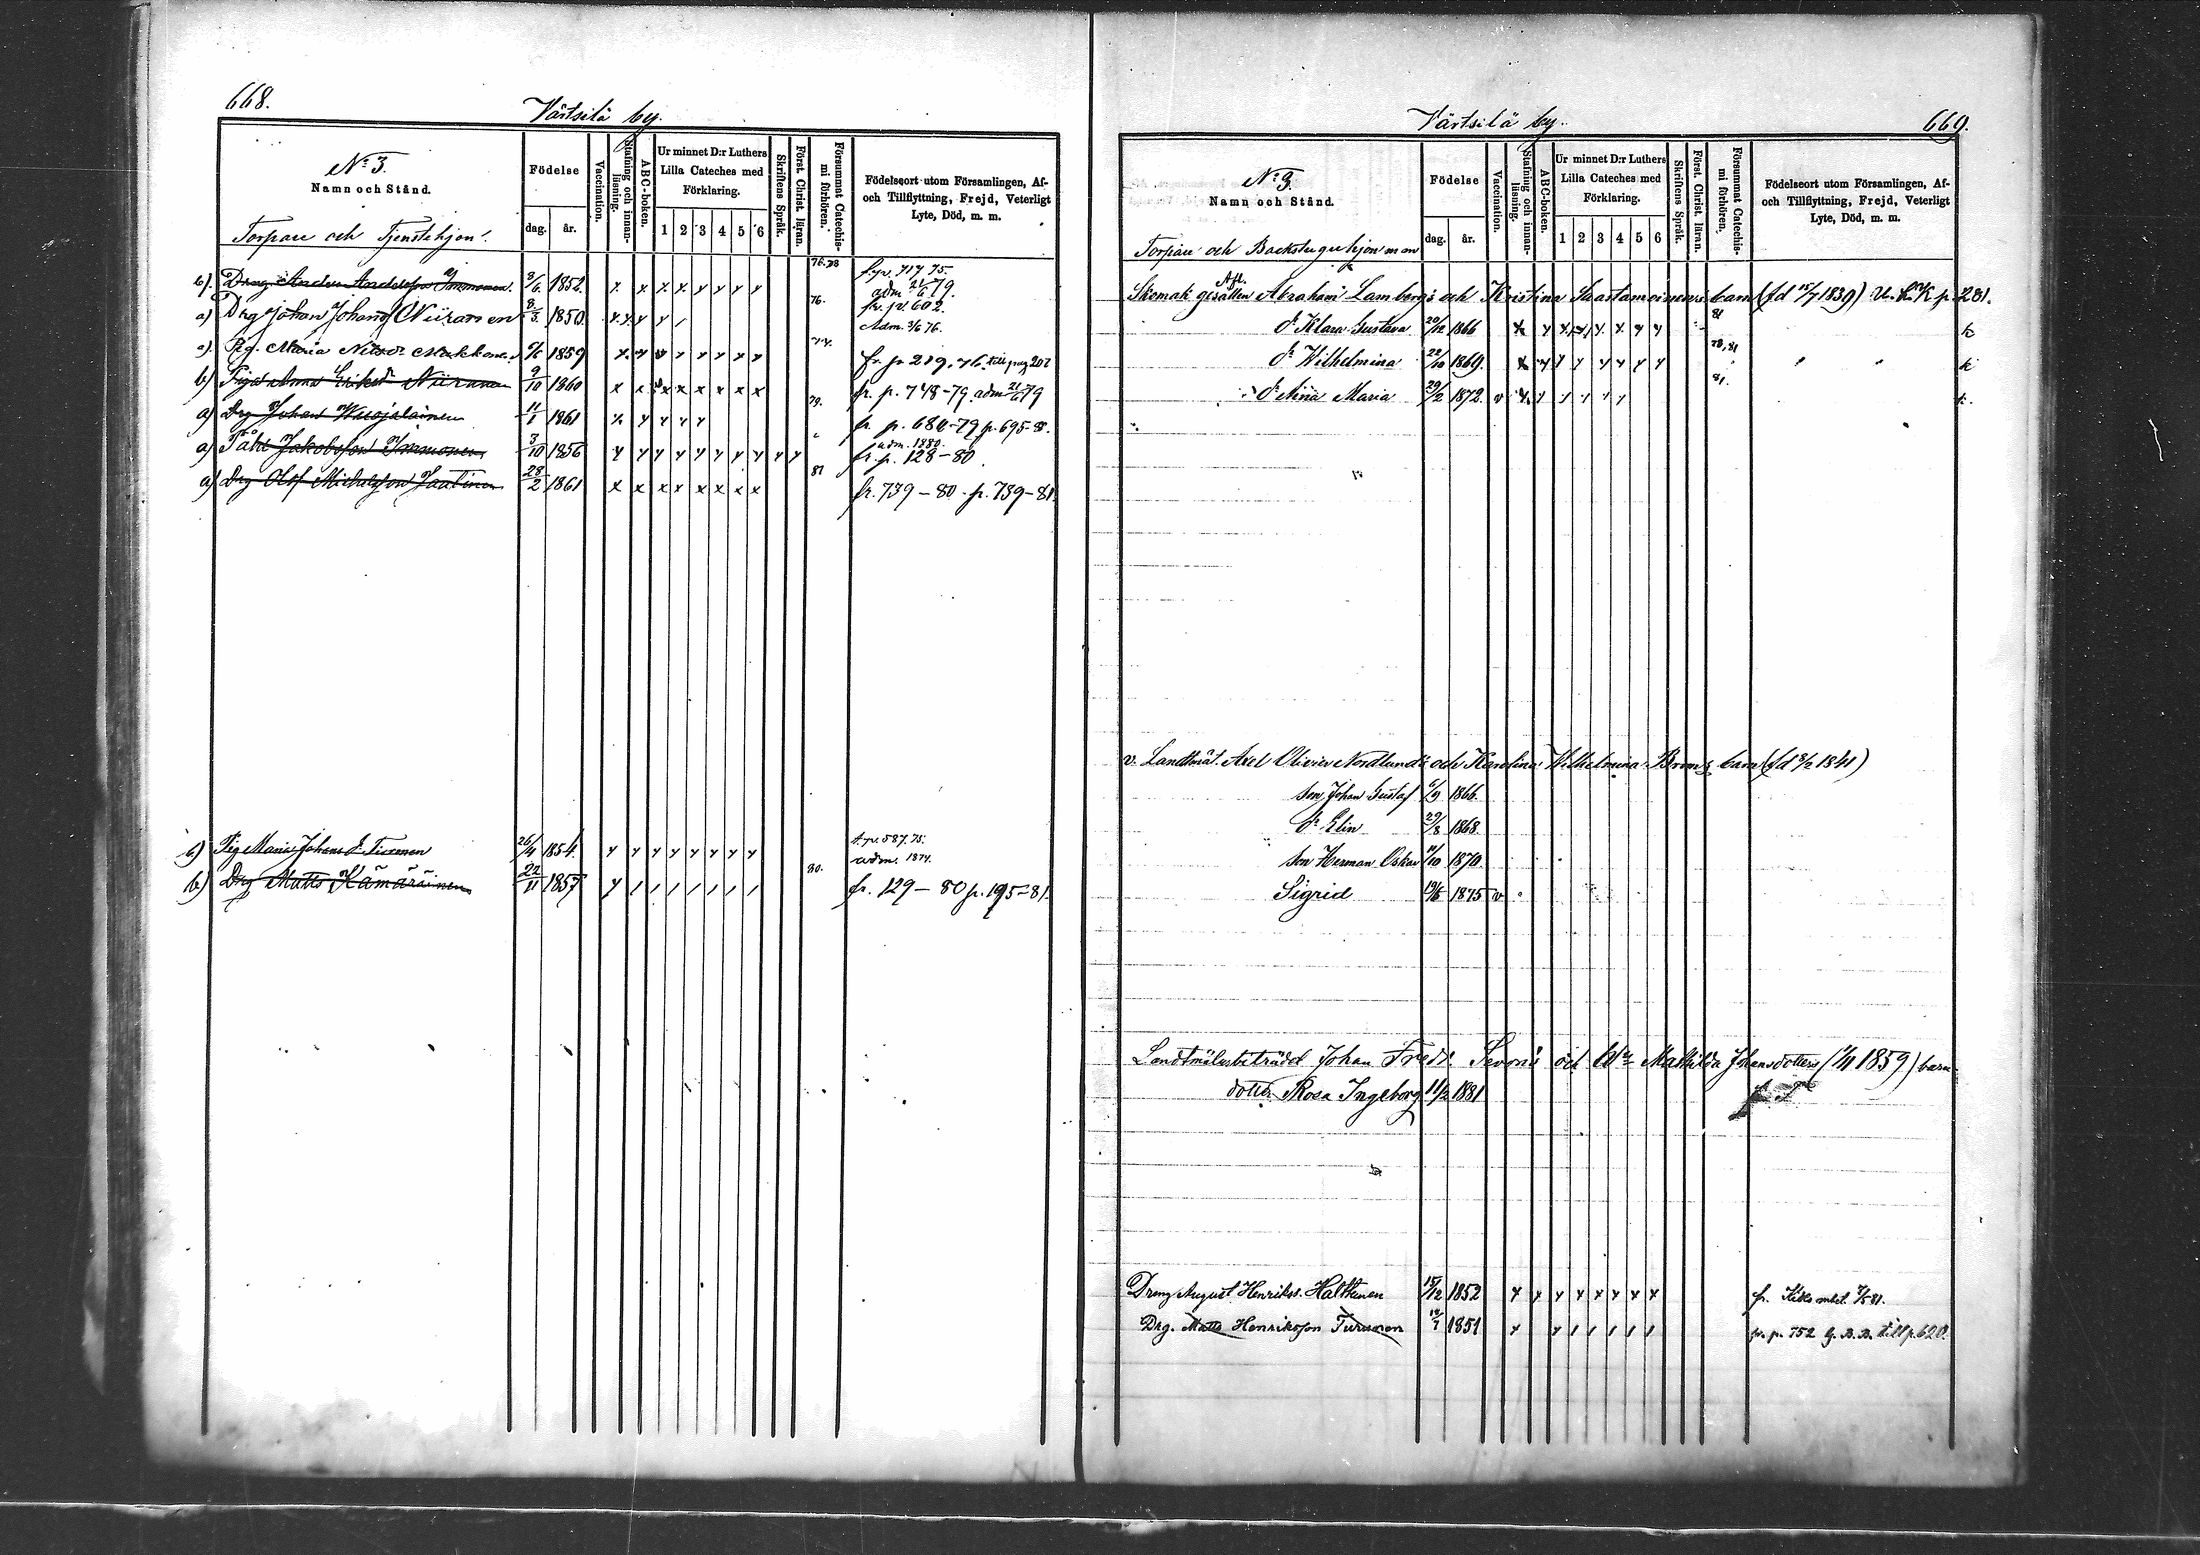 668.
Värtsilä by.
No. 3.
Namn och Stånd.
Födelse
dag. år.
Vaccination.
Stafning och innanläsning.
ABC-boken.
Ur minnet D:r Luthers Lilla Cateches med Förklaring.
1 2 3 4 5 6
Skriftens Språk.
Först. Christ. läran.
Försummat Catechismi förhören.
Födelseort utom Församlingen, Af- och Tillflyttning, Frejd, Veterligt Lyte, Död, m. m.
Torpare och Tjenstehjon.
b). Dräng Anders Andersson Immonen 8/6 1852. x x x x y y y y 76.78 fr. p. 717 75. adm 21/6 79.
a) Drg Johan Johans Niiranen 8/3 1850 76. fr. p. 602. Adm. 76.
Pig. Maria Nilsd. Makkonen 1859 74. fr. p. 219. 76. till pag 207
b) Pigan Anna Eriksd. Niiranen 9/10 1860 x x x x x x x x fr. p. 748-79 adm 21/6 79
a) Drg Johan Wuojalainen 11/1 1861 79. fr. p. 680-79 p. 695-8.
a) Påhl Jakobsson Immonen 3/10 1856 adm. 1880. fr. p. 128-80.
a) Drg Olof Michelsson Jaatinen 28/2 1861 x x x x x x x x 81 fr. 739-80. p. 739-81.
b) Pig Maria Johans d. Tiainen 26/4 1854. y y y y y y y y f. p. 587. 75. adm. 1874.
b) Drg Matts Kämäräinen 22/11 1857 80. fr. 129-80 p. 195-81.
Värtsilä by.
669.
No. 3.
Namn och Stånd.
Födelse
dag. år.
Vaccination.
Stafning och innanläsning.
ABC-boken.
Ur minnet D:r Luthers Lilla Cateches med Förklaring.
1 2 3 4 5 6
Skriftens Språk.
Först. Christ. läran.
Försummat Catechismi förhören.
Födelseort utom Församlingen, Af- och Tillflyttning, Frejd, Veterligt Lyte, Död, m. m.
Torpare och Backstuguhjon m m
Skomak gesällen Afl. Abraham Lambergs och Kristina Saastamoinens barn (fd 15/7 1839) p. 281.
dr Klara Gustava 20/12 1866 81
dr Wilhelmina 22/10 1869. 78, 81
dr Miina Maria 29/2 1872. v 81.
v. Landtmät. Axel Olivier Nordlunds och Karolina Wilhelmina barn (fd 8/2 1841)
Son Johan Gustaf 6/9 1866.
dr Elin 29/8 1868.
Son Herman Oskar 11/10 1870.
Sigrid 19/5 1875 v
Landtmäteribiträdet Johan Fredr. och Mathilda Johansdotters (1859) barn
dotter Rosa Ingeborg 11/2 1881
Dreng August Henrikss. Halttunen 15/12 1852 y y y y y y y y fr. 81.
Drg. Matts Henriksson Turunen 12/7 1851 fr. p. 752 G. B. B. till p. 620.